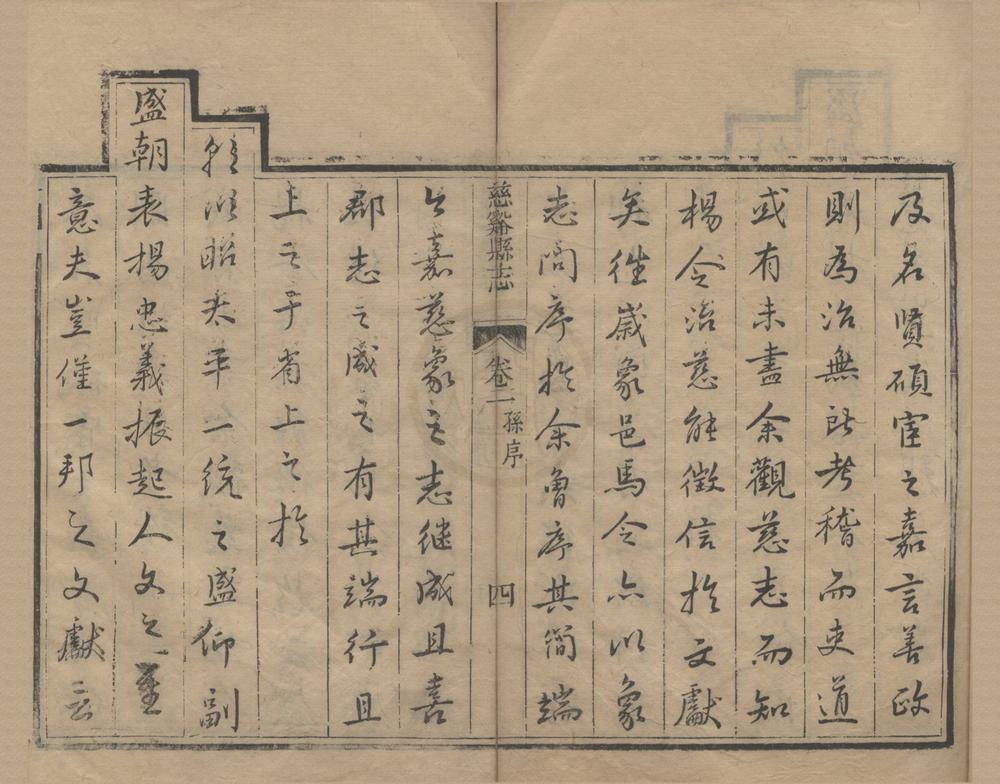 及名賢碩宦之嘉言善政
則為治無所考稽而吏道
或有未盡余觀慈志而知
楊令治慈能徵信於文獻
矣徃歲象邑馬令亦以象
志問序於余曾序其簡端
慈谿縣志 卷二 孫序 四
今嘉慈象之志継成且喜
郡志之成之有其端行且
上之于省上之於
朝以昭太平一統之盛仰副
盛朝表揚忠義振起人文之至
意夫豈僅一邦之文獻云